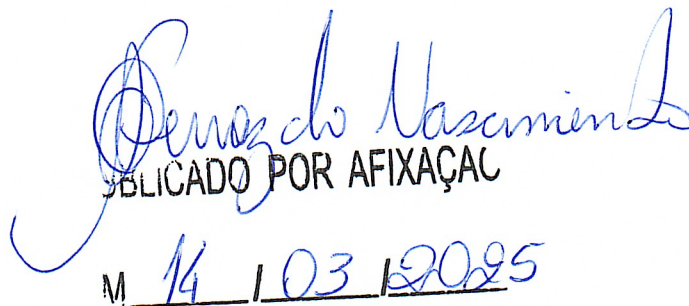 do Nascimento
UBLICADO POR AFIXAÇÃO
M 14 / 03 / 2025